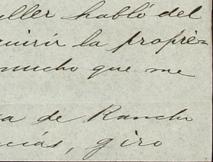 uller habló del
quirir la propie-
mucho que me
a de Rancho
cias, giro